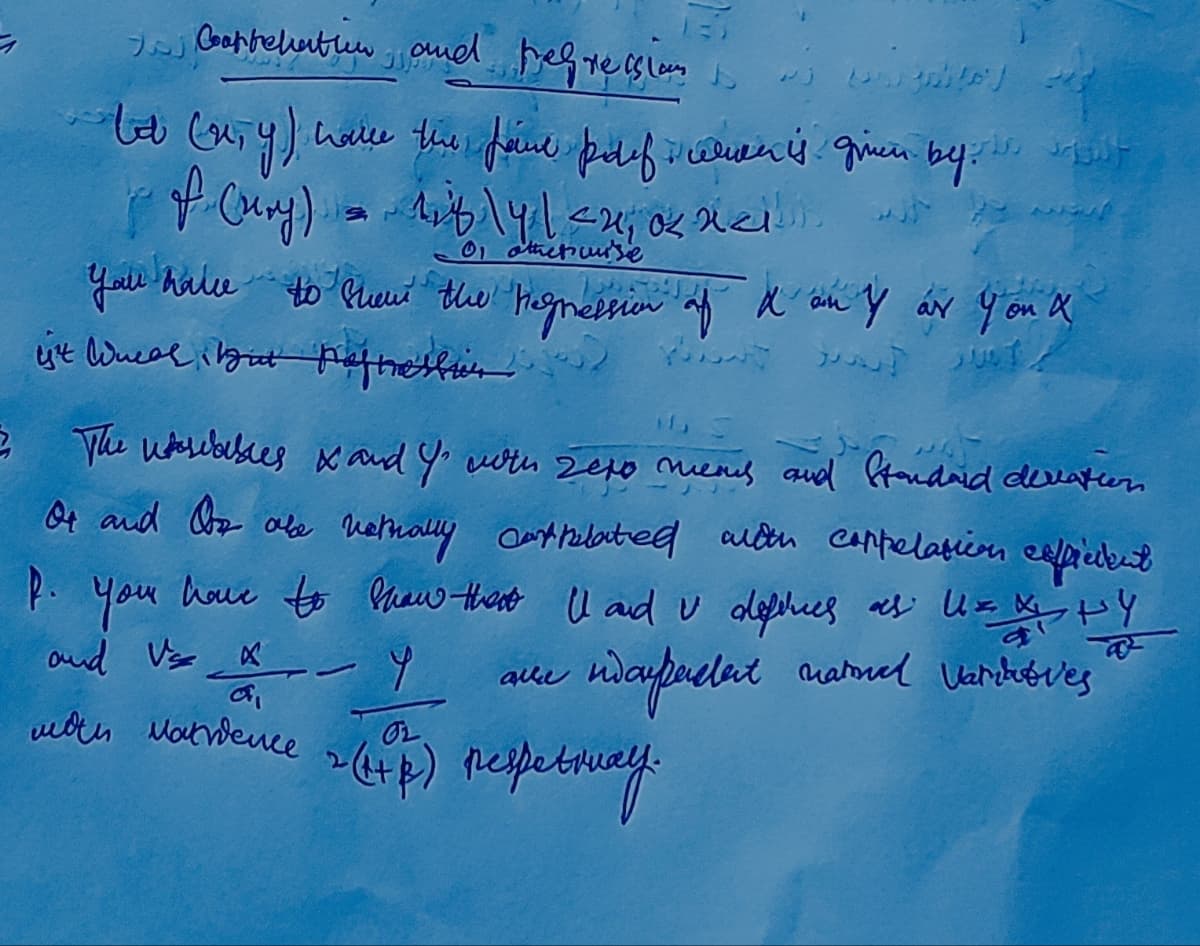 Correlation and regression
Let (x, y) have the joint pdf, which is given by:
f(x,y) = 1, if |y| < x, 0 < x < 1
0, otherwise
You have to show the regression of X on Y or Y on X
is linear, but regression
The variables X and Y with zero means and standard deviation
σ1 and σ2 are normally correlated with correlation coefficient
ρ. You have to show that U and V defines as U = X/σ1 + Y/σ2
and V = X/σ1 - Y/σ2 are independent normal
with variance 2(1+ρ) respectively.